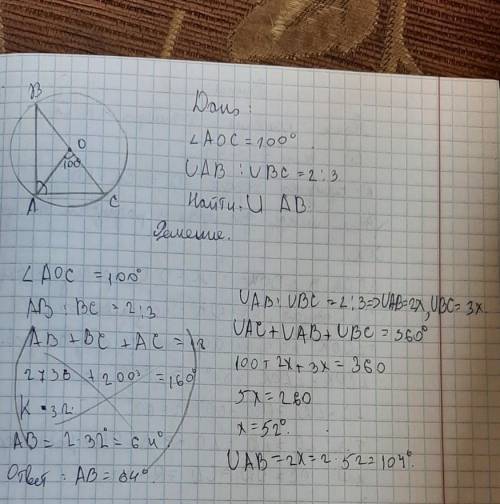 B
O
100°
A
C
Дано:
∠AOC = 100°
∪AB : ∪BC = 2:3
Найти: ∪ AB
Решение.
∠AOC = 100°
AB : BC = 2:3
AB + BC + AC =
= 160°
K = 32
AB = 2·32° = 64°
Ответ: AB = 64°.
∪AB : ∪BC = 2:3 => ∪AB=2x, ∪BC = 3x.
∪AC + ∪AB + ∪BC = 360°
100 + 2x + 3x = 360
5x = 260
x = 52°.
∪AB = 2x = 2·52 = 104°.